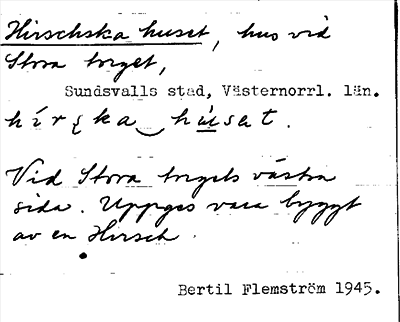 Hirschska huset, hus vid
Stora torget,
Sundsvalls stad, Västernorrl. län.
hi´rʂka‿hu̲´sat.
Vid Stora torgets västra
sida. Uppges vara byggt
av en Hirsch.
Bertil Flemström 1945.